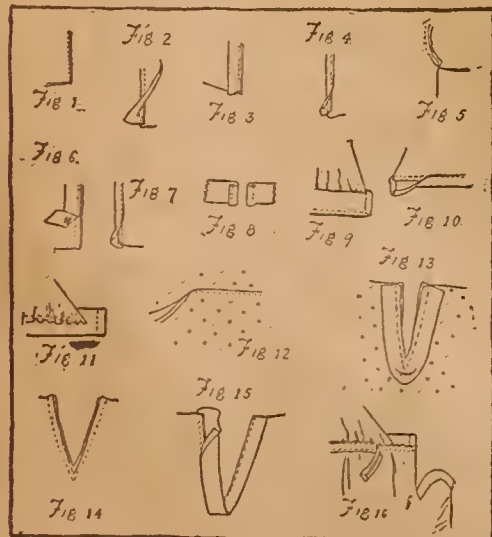 Fig 1
Fig 2
Fig 3
Fig 4
Fig 5
Fig 6
Fig 7
Fig 8
Fig 9
Fig 10
Fig 11
Fig 12
Fig 13
Fig 14
Fig 15
Fig 16